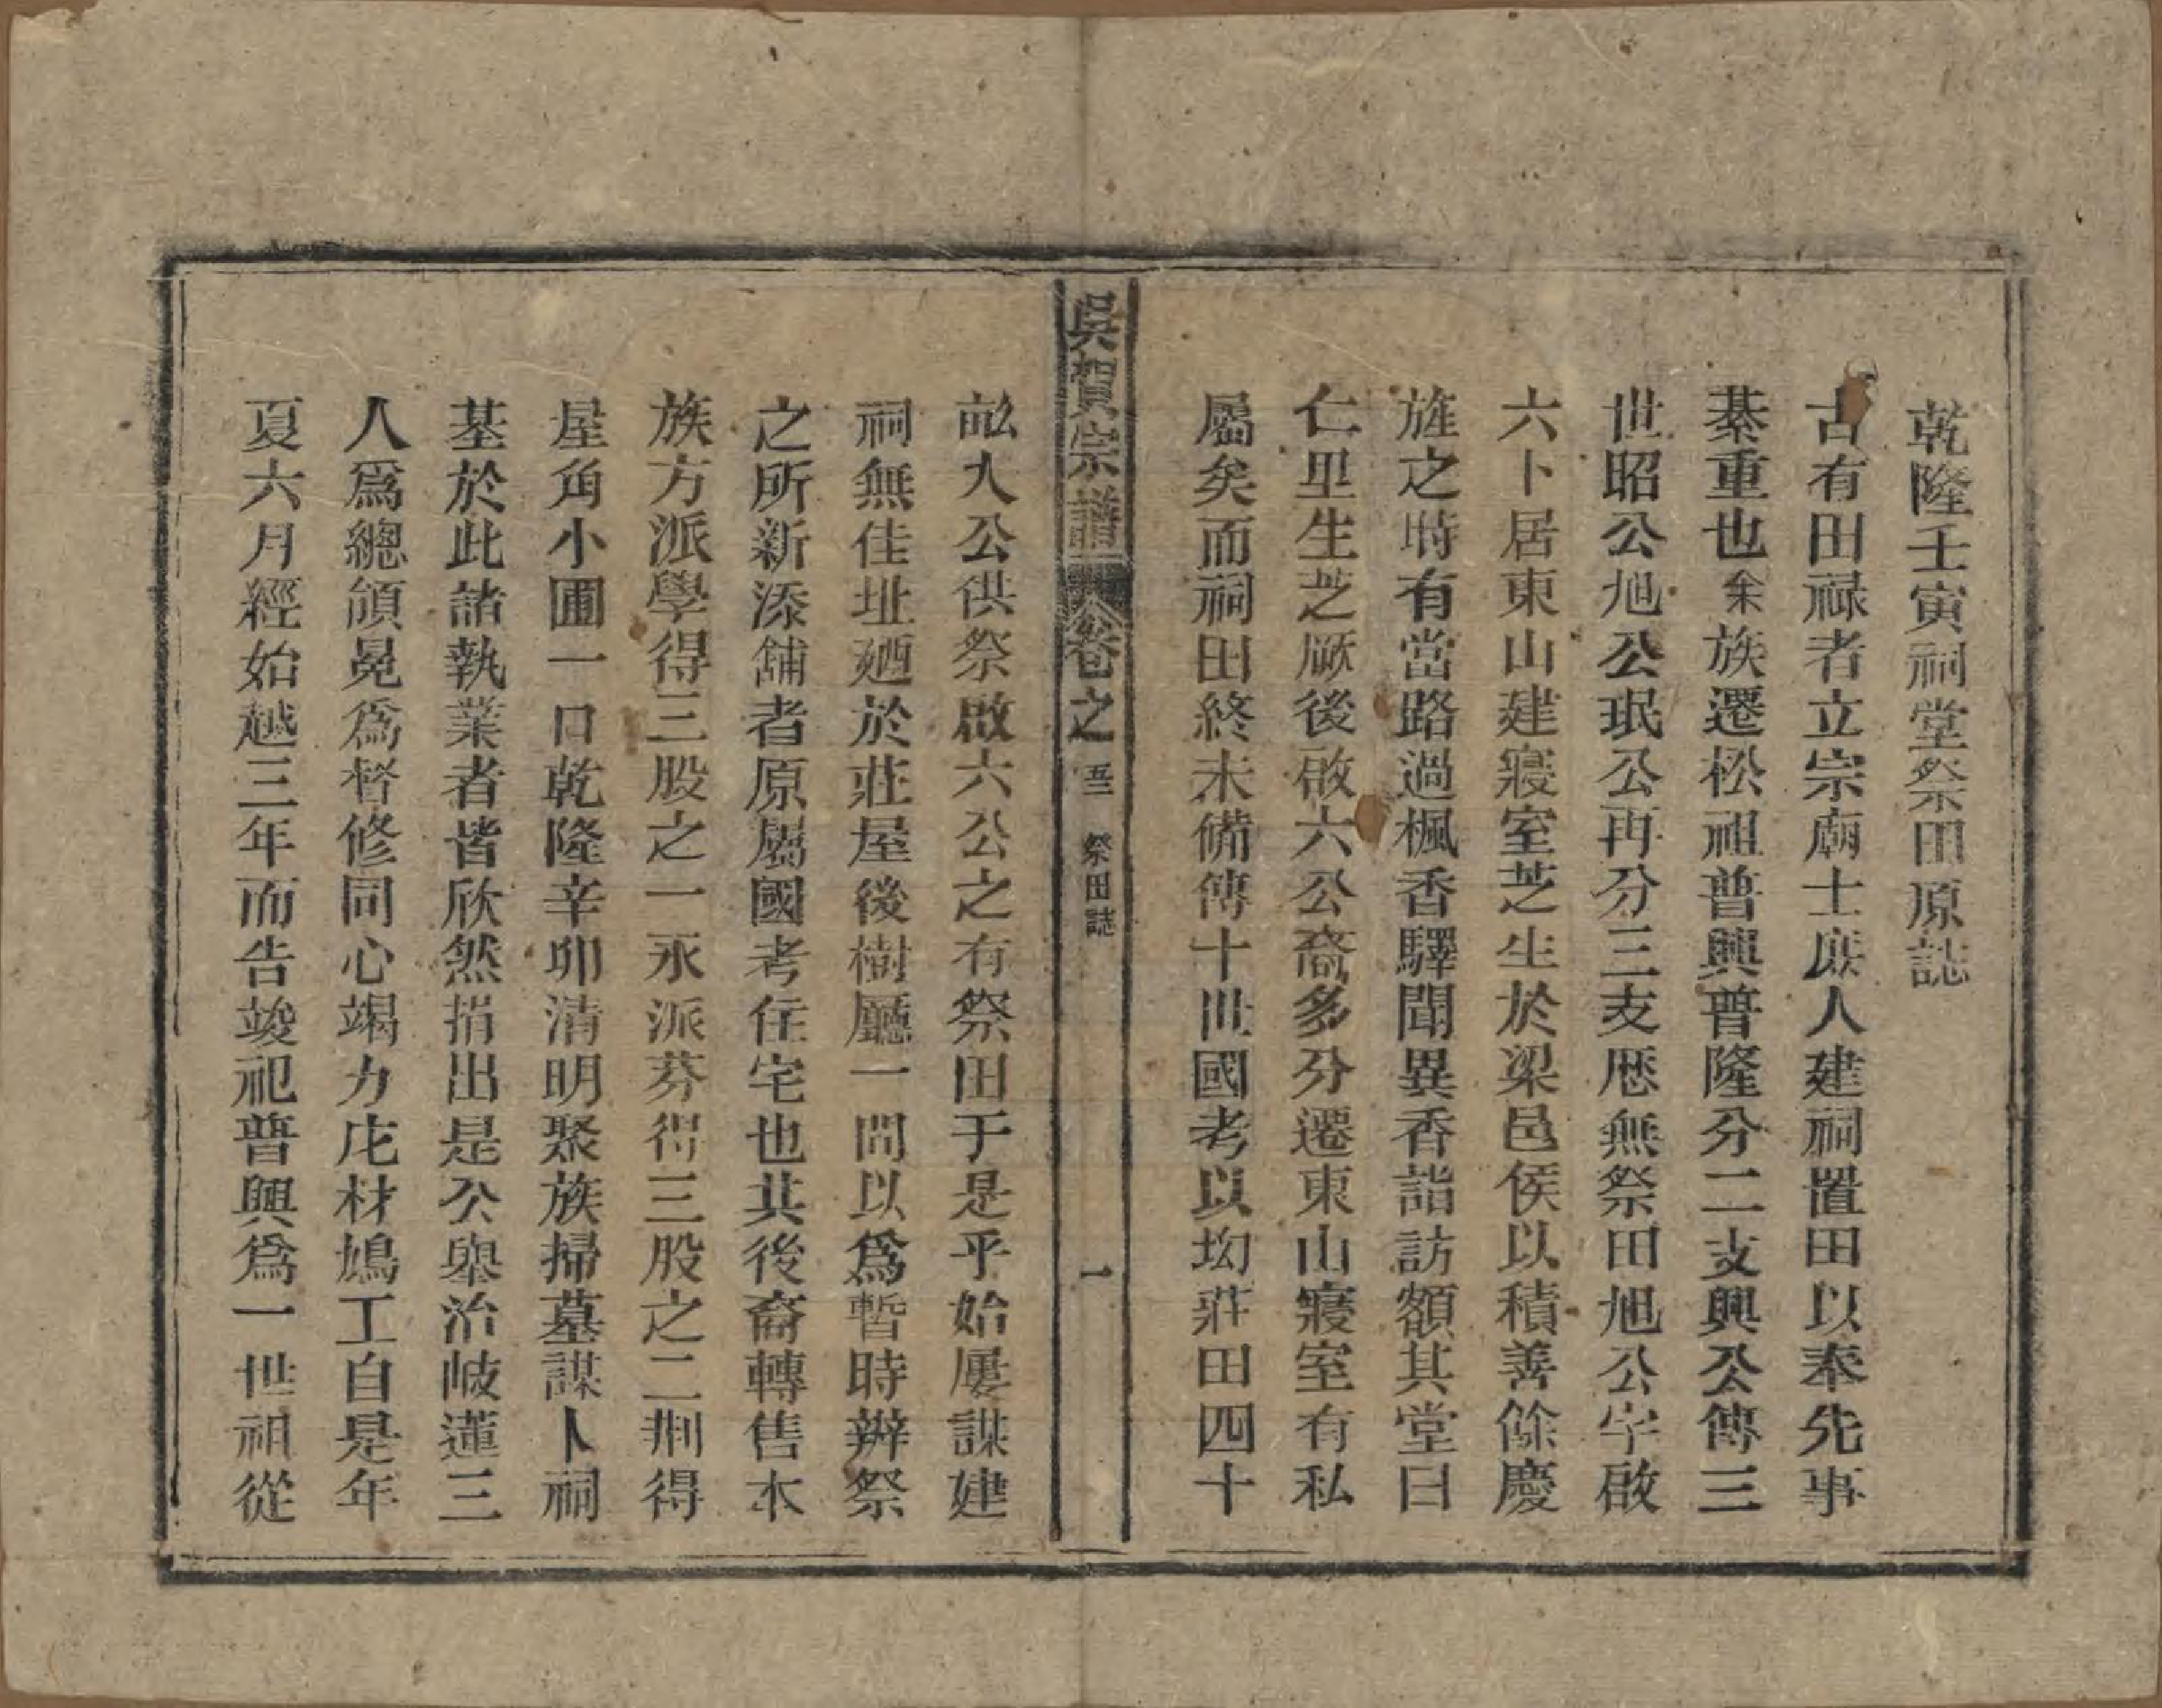 乾隆壬寅祠堂祭田原誌
古有田祿者立宗廟士庶人建祠置田以奉先事
綦重也余族遷松祖普興普隆分二支興公傳三
世昭公旭公珉公再分三支歷無祭田旭公字啟
六卜居東山建寢室芝生於梁邑侯以積善餘慶
旌之時有當路過楓香驛聞異香詣訪額其堂曰
仁里生芝厥後啟六公裔多分遷東山寢室有私
屬矣而祠田終未備傳十世國考以坳莊田四十
畝大公供祭啟六公之有祭田于是乎始屢謀建
祠無佳址廼於莊屋後樹廳一間以爲暫時辦祭
之所新添舖者原屬國考住宅也其後裔轉售本
族方派學得三股之一永派芬得三股之二荆得
星角小圃一口乾隆辛卯清明聚族掃墓謀卜祠
基於此諸執業者皆欣然捐出是公舉治岐蓮三
人爲總領晃爲督修同心竭力庀材鳩工自是年
夏六月經始越三年而告竣祀普興爲一世祖從
吳賀宗譜 卷之 五 祭田誌 一